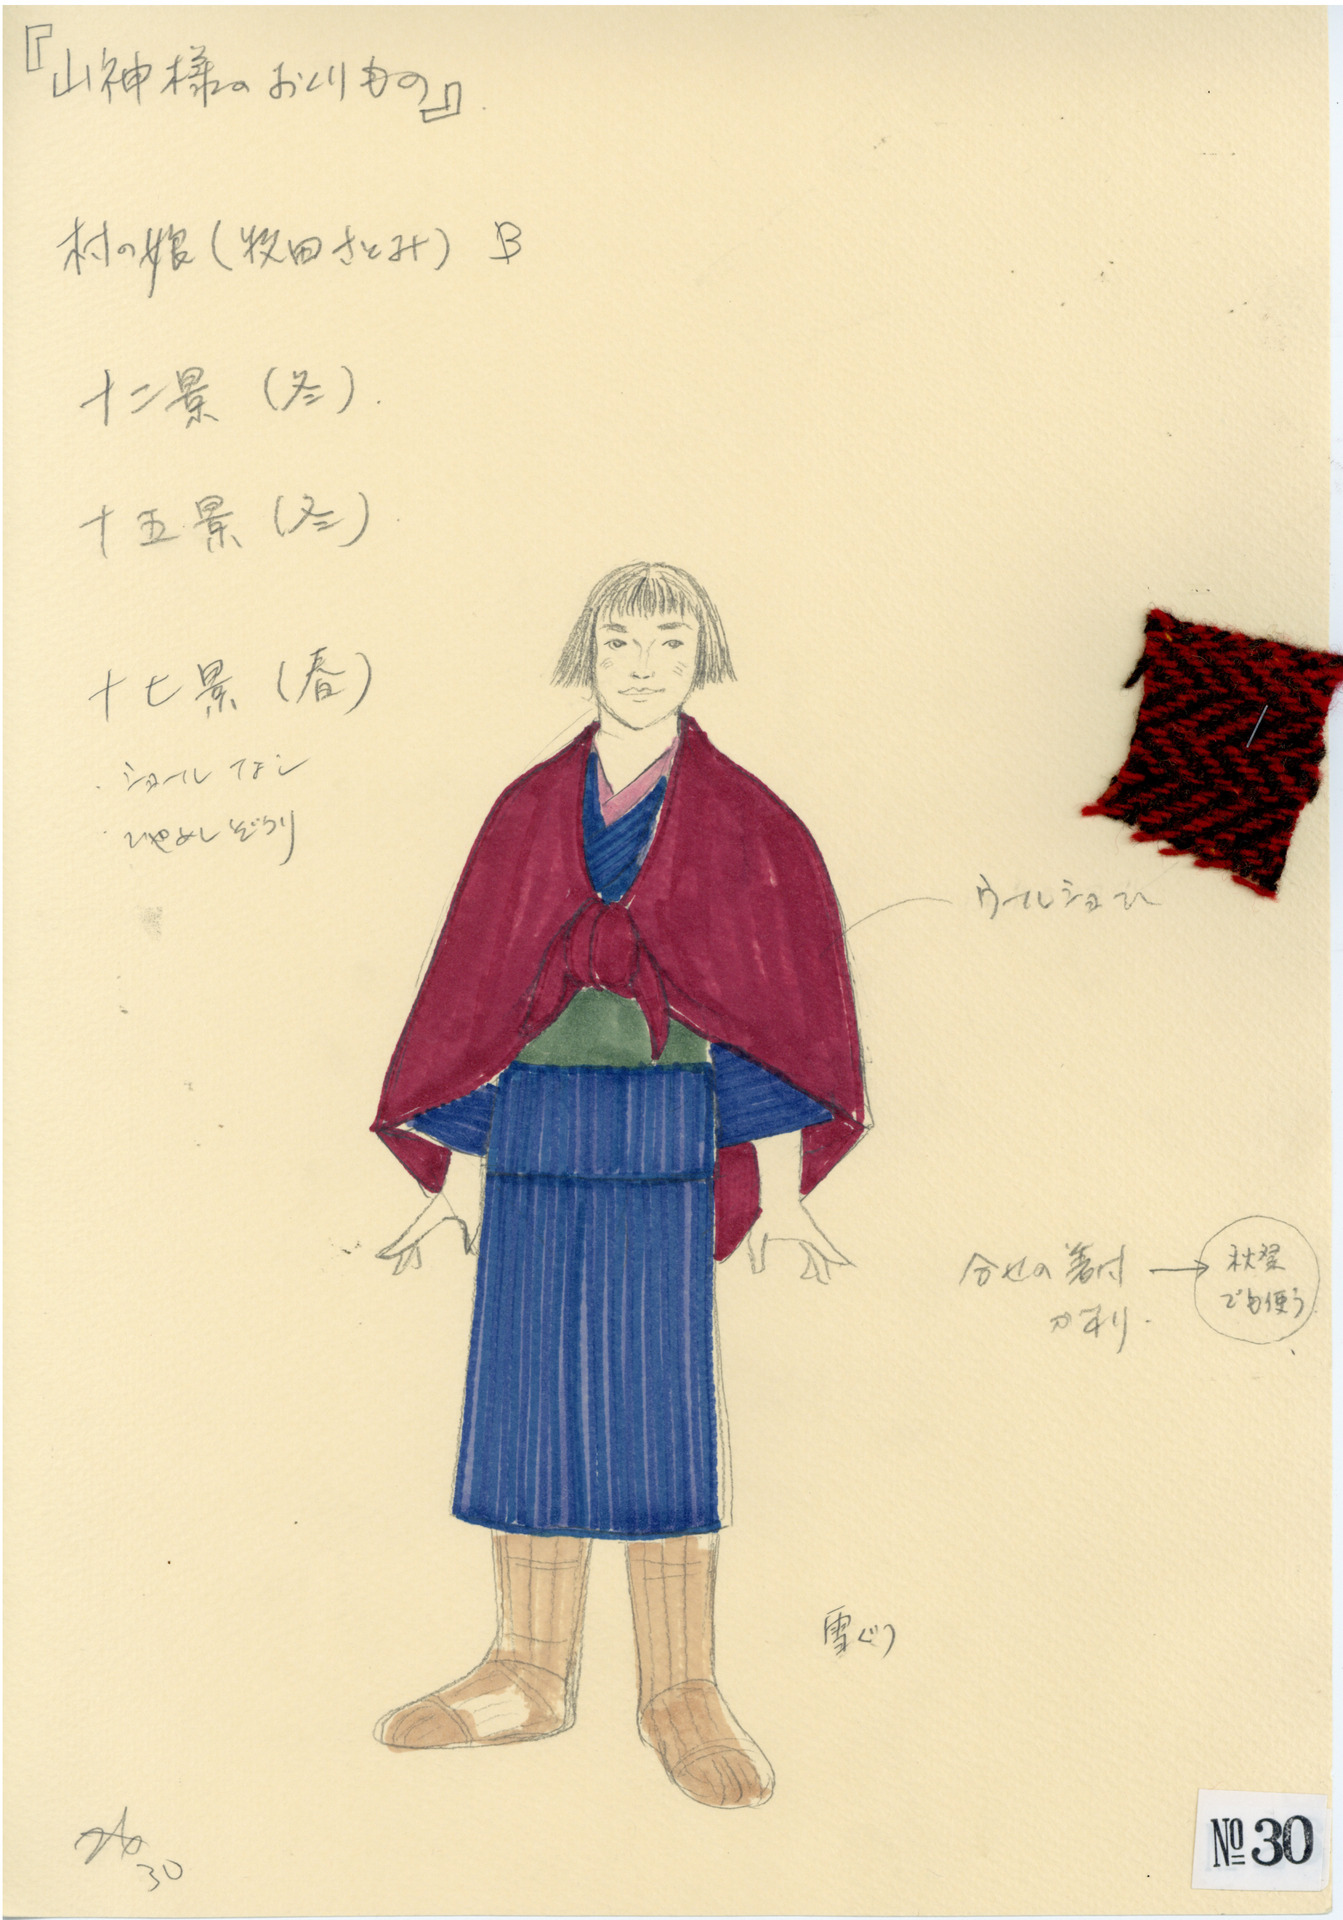 『山神様のおくりもの』
村の娘(牧田さとみ) B
十二景(冬)
十五景(冬)
十七景(春)
ショールなし
ひやめしぞうり
ウールショール
合せの着付
かすり
秋翠
でも使う
雪ぐつ
30
№30